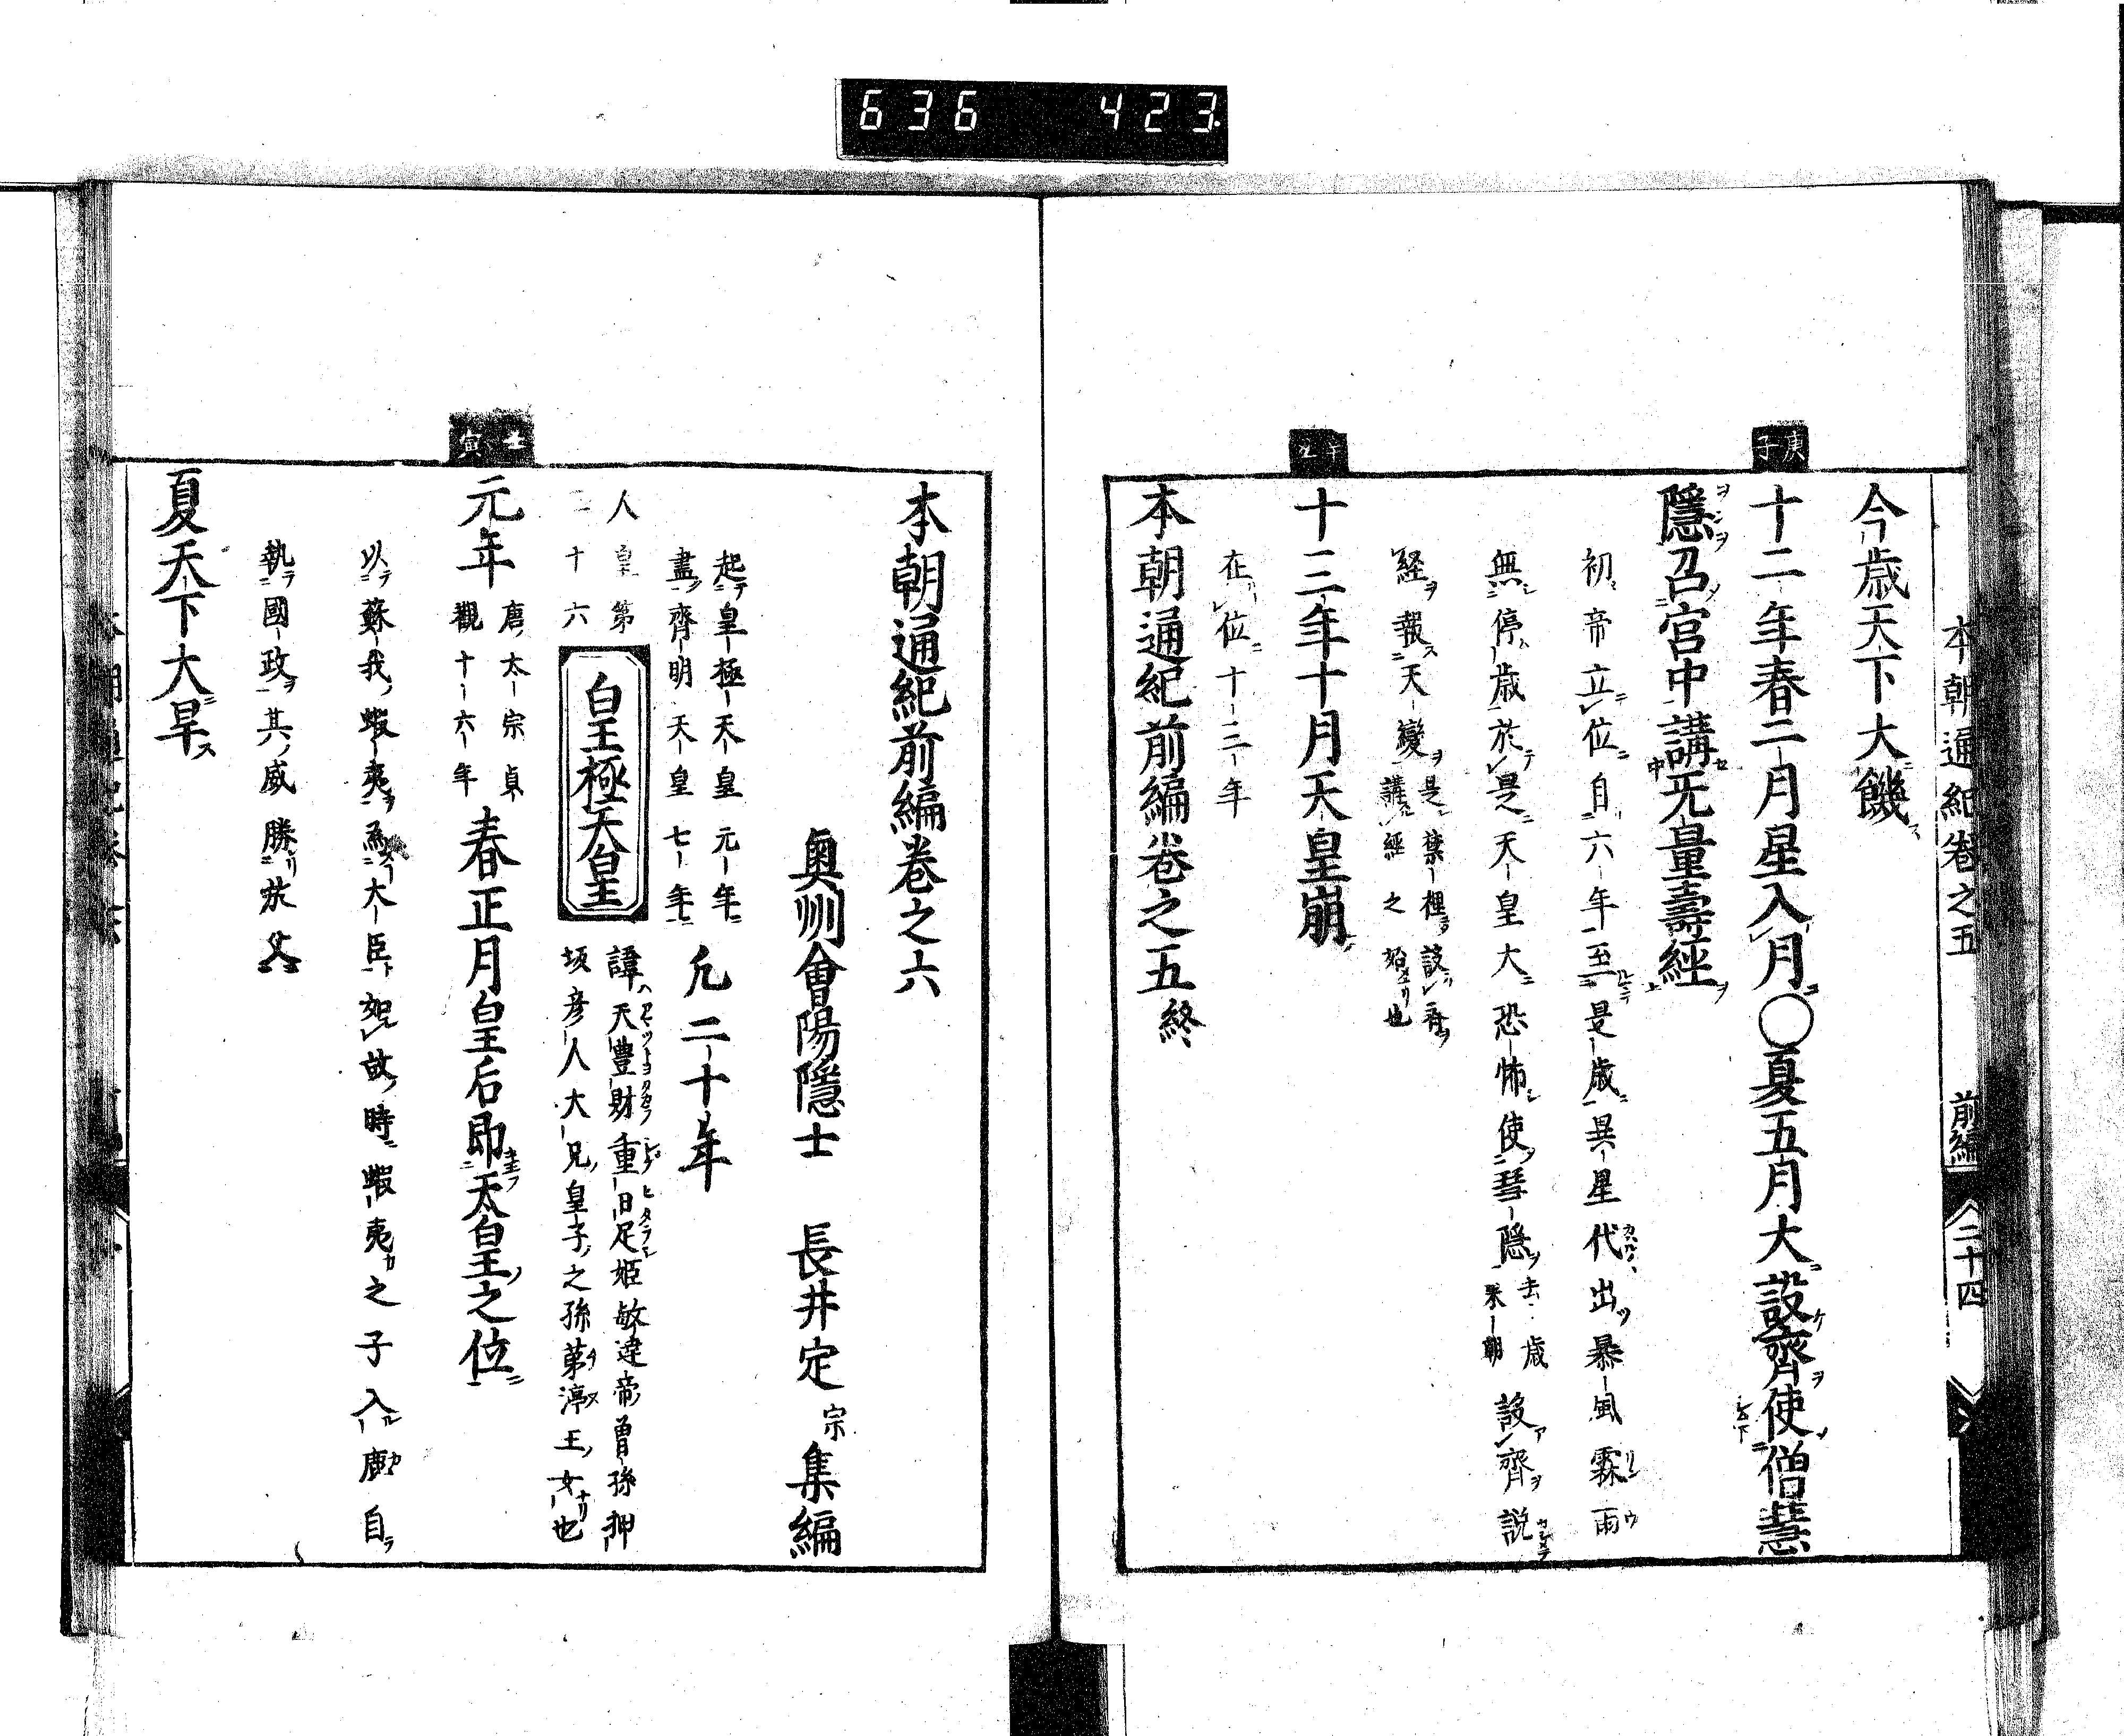 636 423
本朝通紀卷之五 前編 二十四
今歳天下大饑
庚子
十二年春二月星入月○夏五月大設齊使僧慧
隱召宮中講无量壽經
初帝立位自六年至是歳異星代出暴風霖雨
無停歳於是天皇大恐怖使慧隱去歳来朝設齊説
経報天變是禁裡設齊講經之始也
辛丑
十三年十月天皇崩
在位十三年
本朝通紀前編卷之五終
本朝通紀前編卷之六
奥州會陽隱士 長井定宗集編
起皇極天皇元年
盡齊明天皇七年 凢二十年
人皇第二十六
皇極天皇
諱天豐財重日足姫敏達帝曾孫押
坂彦人大兄皇子之孫茅渟王女也
壬寅
元年唐太宗貞觀十六年春正月皇后即天皇之位
以蘇我蝦夷為大臣如故時蝦夷之子入鹿自
執國政其威勝於父
夏天下大旱